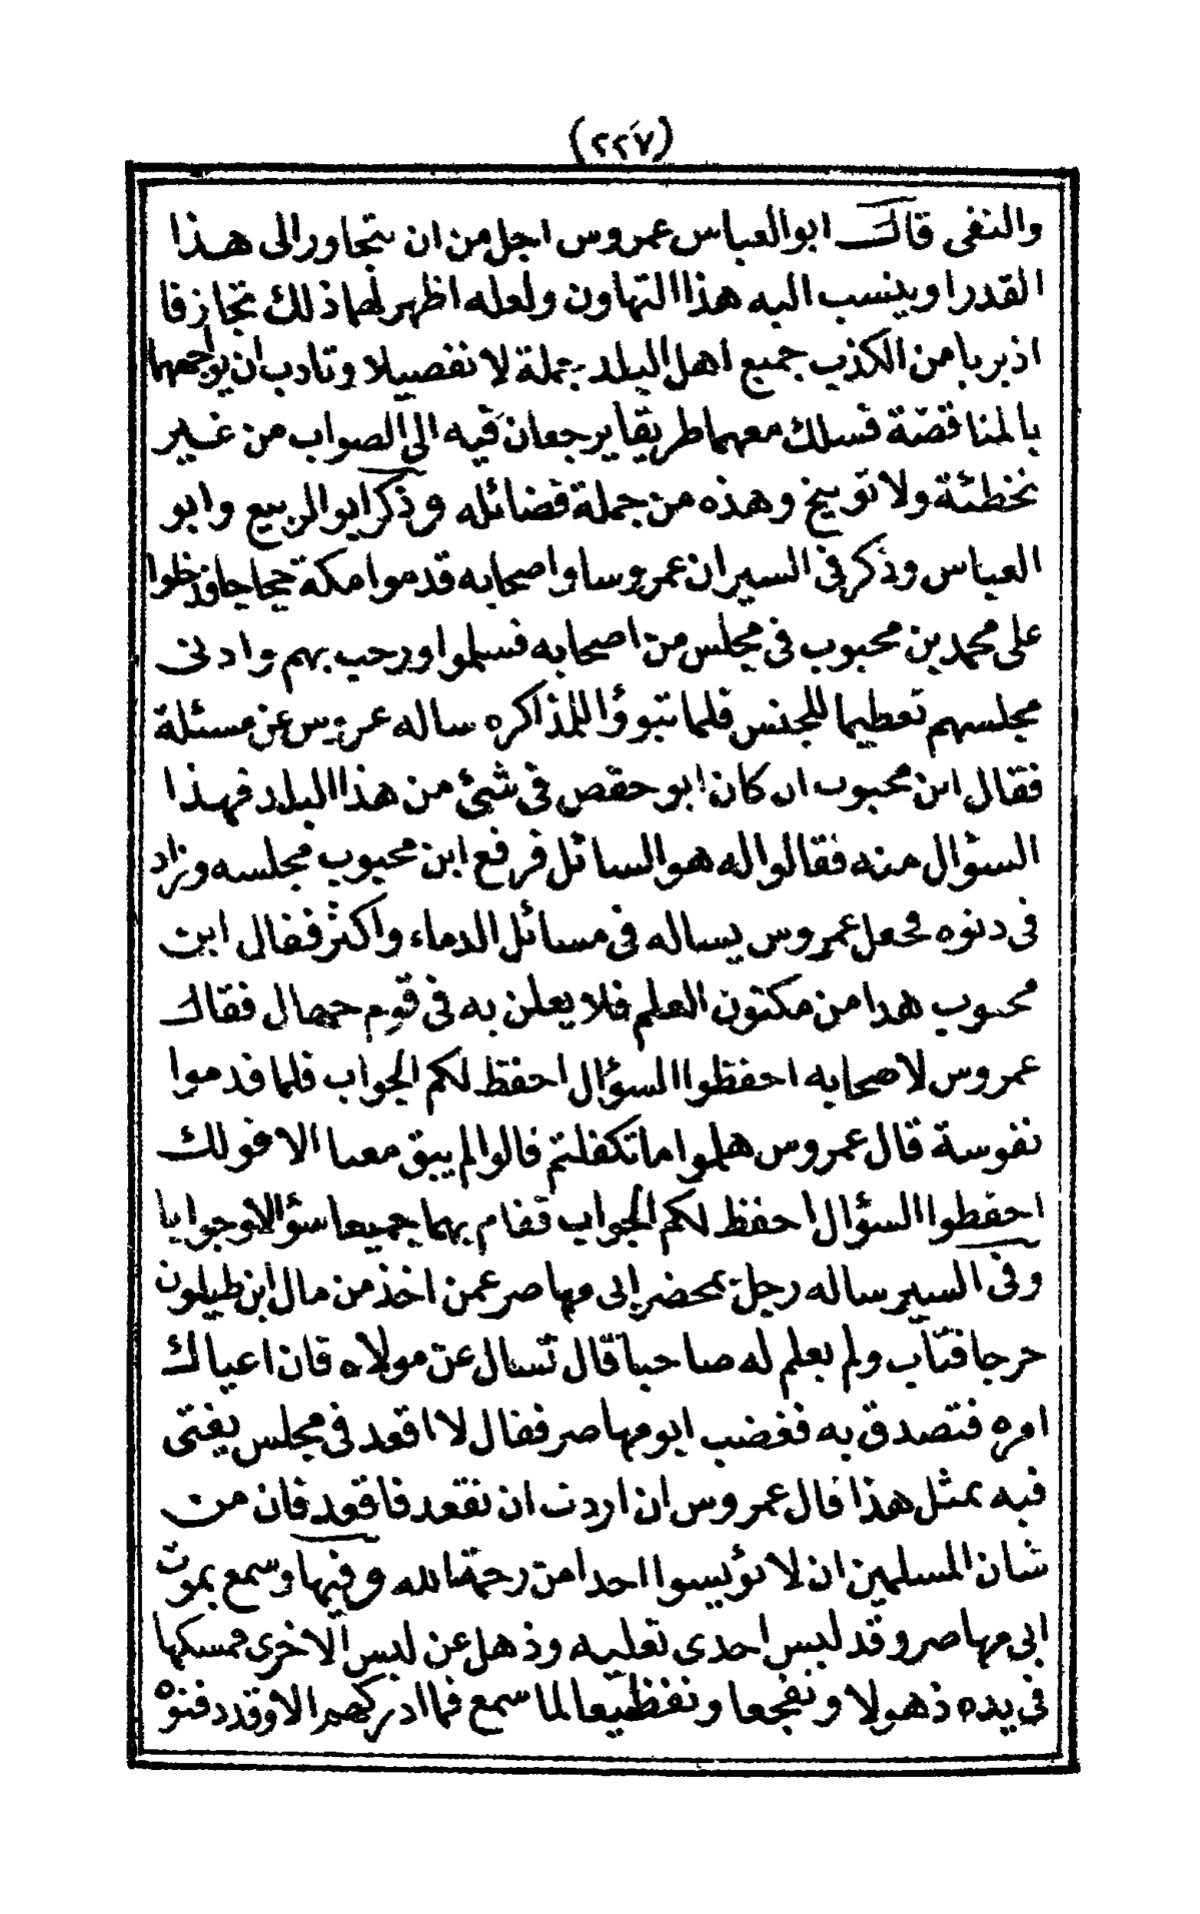 (٢٢٧)
والنفى قال ابو العباس عمروس اجل من ان يتجاوز الى هذا
القدر او ينسب اليه هذا التهاون ولعله اظهر لهما ذلك تجازفا
اذ بريا من الكذب جميع اهل البلد جملة لا تفصيلا وتادب ان يواجههما
بالمناقضة فسلك معهما طريقا يرجعان فيه الى الصواب من غير
تخطئة ولا توبيخ وهذه من جملة فضائله وذكر ابو الربيع وابو
العباس وذكر في السير ان عمروسا واصحابه قدموا مكة حجاجا فدخلوا
على محمد بن محبوب في مجلس من اصحابه فسلموا ورحب بهم وادنى
مجلسهم تعظيما للجنس فلما تبوؤا للمذاكره ساله عمروس عن مسئلة
فقال ابن محبوب ان كان ابو حفص في شئ من هذا البلد فهذا
السؤال منه فقالوا له هو السائل فرفع ابن محبوب مجلسه وزاد
في دنوه فجعل عمروس يساله في مسائل الدماء واكثر فقال ابن
محبوب هذا من مكنون العلم فلا يعلن به في قوم جهال فقال
عمروس لاصحابه احفظوا السؤال احفظ لكم الجواب فلما قدموا
نفوسة قال عمروس هلموا ما تكفلتم قالوا لم يبق معنا الا قولك
احفظوا السؤال احفظ لكم الجواب فقام بهما جميعا سؤالا وجوابا
وفي السير ساله رجل بمحضر ابي مهاصر عمن اخذ من مال ابن طيلون
حرجا فتاب ولم يعلم له صاحبا قال تسال عن مولاه فان اعياك
امره فتصدق به فغضب ابو مهاصر فقال لا اقعد في مجلس يفتى
فيه بمثل هذا قال عمروس ان اردت ان تقعد فاقعد فان من
شان المسلمين ان لا يؤيسوا احدا من رحمة الله وفيها وسمع بموت
ابي مهاصر وقد لبس احدى نعليه وذهل عن لبس الاخرى فمسكها
في يده ذهولا وتفجعا وتفظيعا لما سمع فما ادركهم الا وقد دفنوه